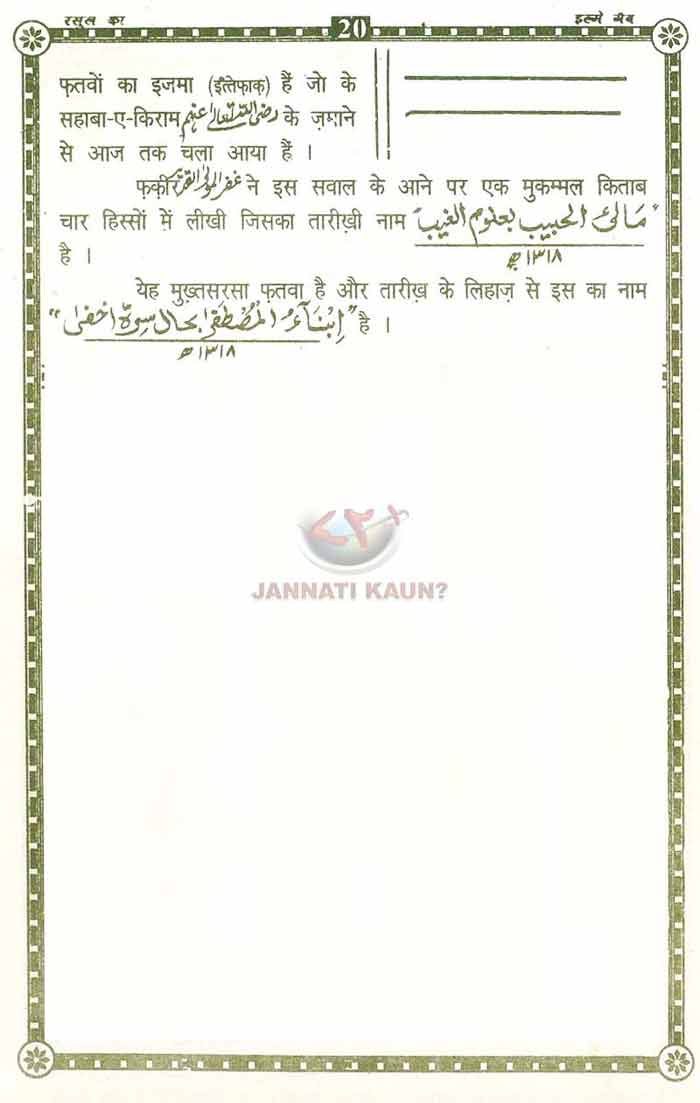 रसूल का
20
इल्मे ग़ैब
फतवों का इजमा (इत्तेफ़ाक) हैं जो के
सहाबा-ए-किराम رضی اللہ تعالیٰ عنہم के ज़माने
से आज तक चला आया हैं ।
फ़क़ीर غفرلہ المولی القدیر ने इस सवाल के आने पर एक मुकम्मल किताब
चार हिस्सों में लीखी जिसका तारीख़ी नाम "مالئ الحبیب بعلوم الغیب"
१३१८ھ
है ।
येह मुख़्तसरसा फ़तवा है और तारीख़ के लिहाज़ से इस का नाम
"اِنْبَآءُ المُصْطَفٰی بحال سِرّہ اخفٰی" है ।
١٣١٨ھ
JANNATI KAUN?